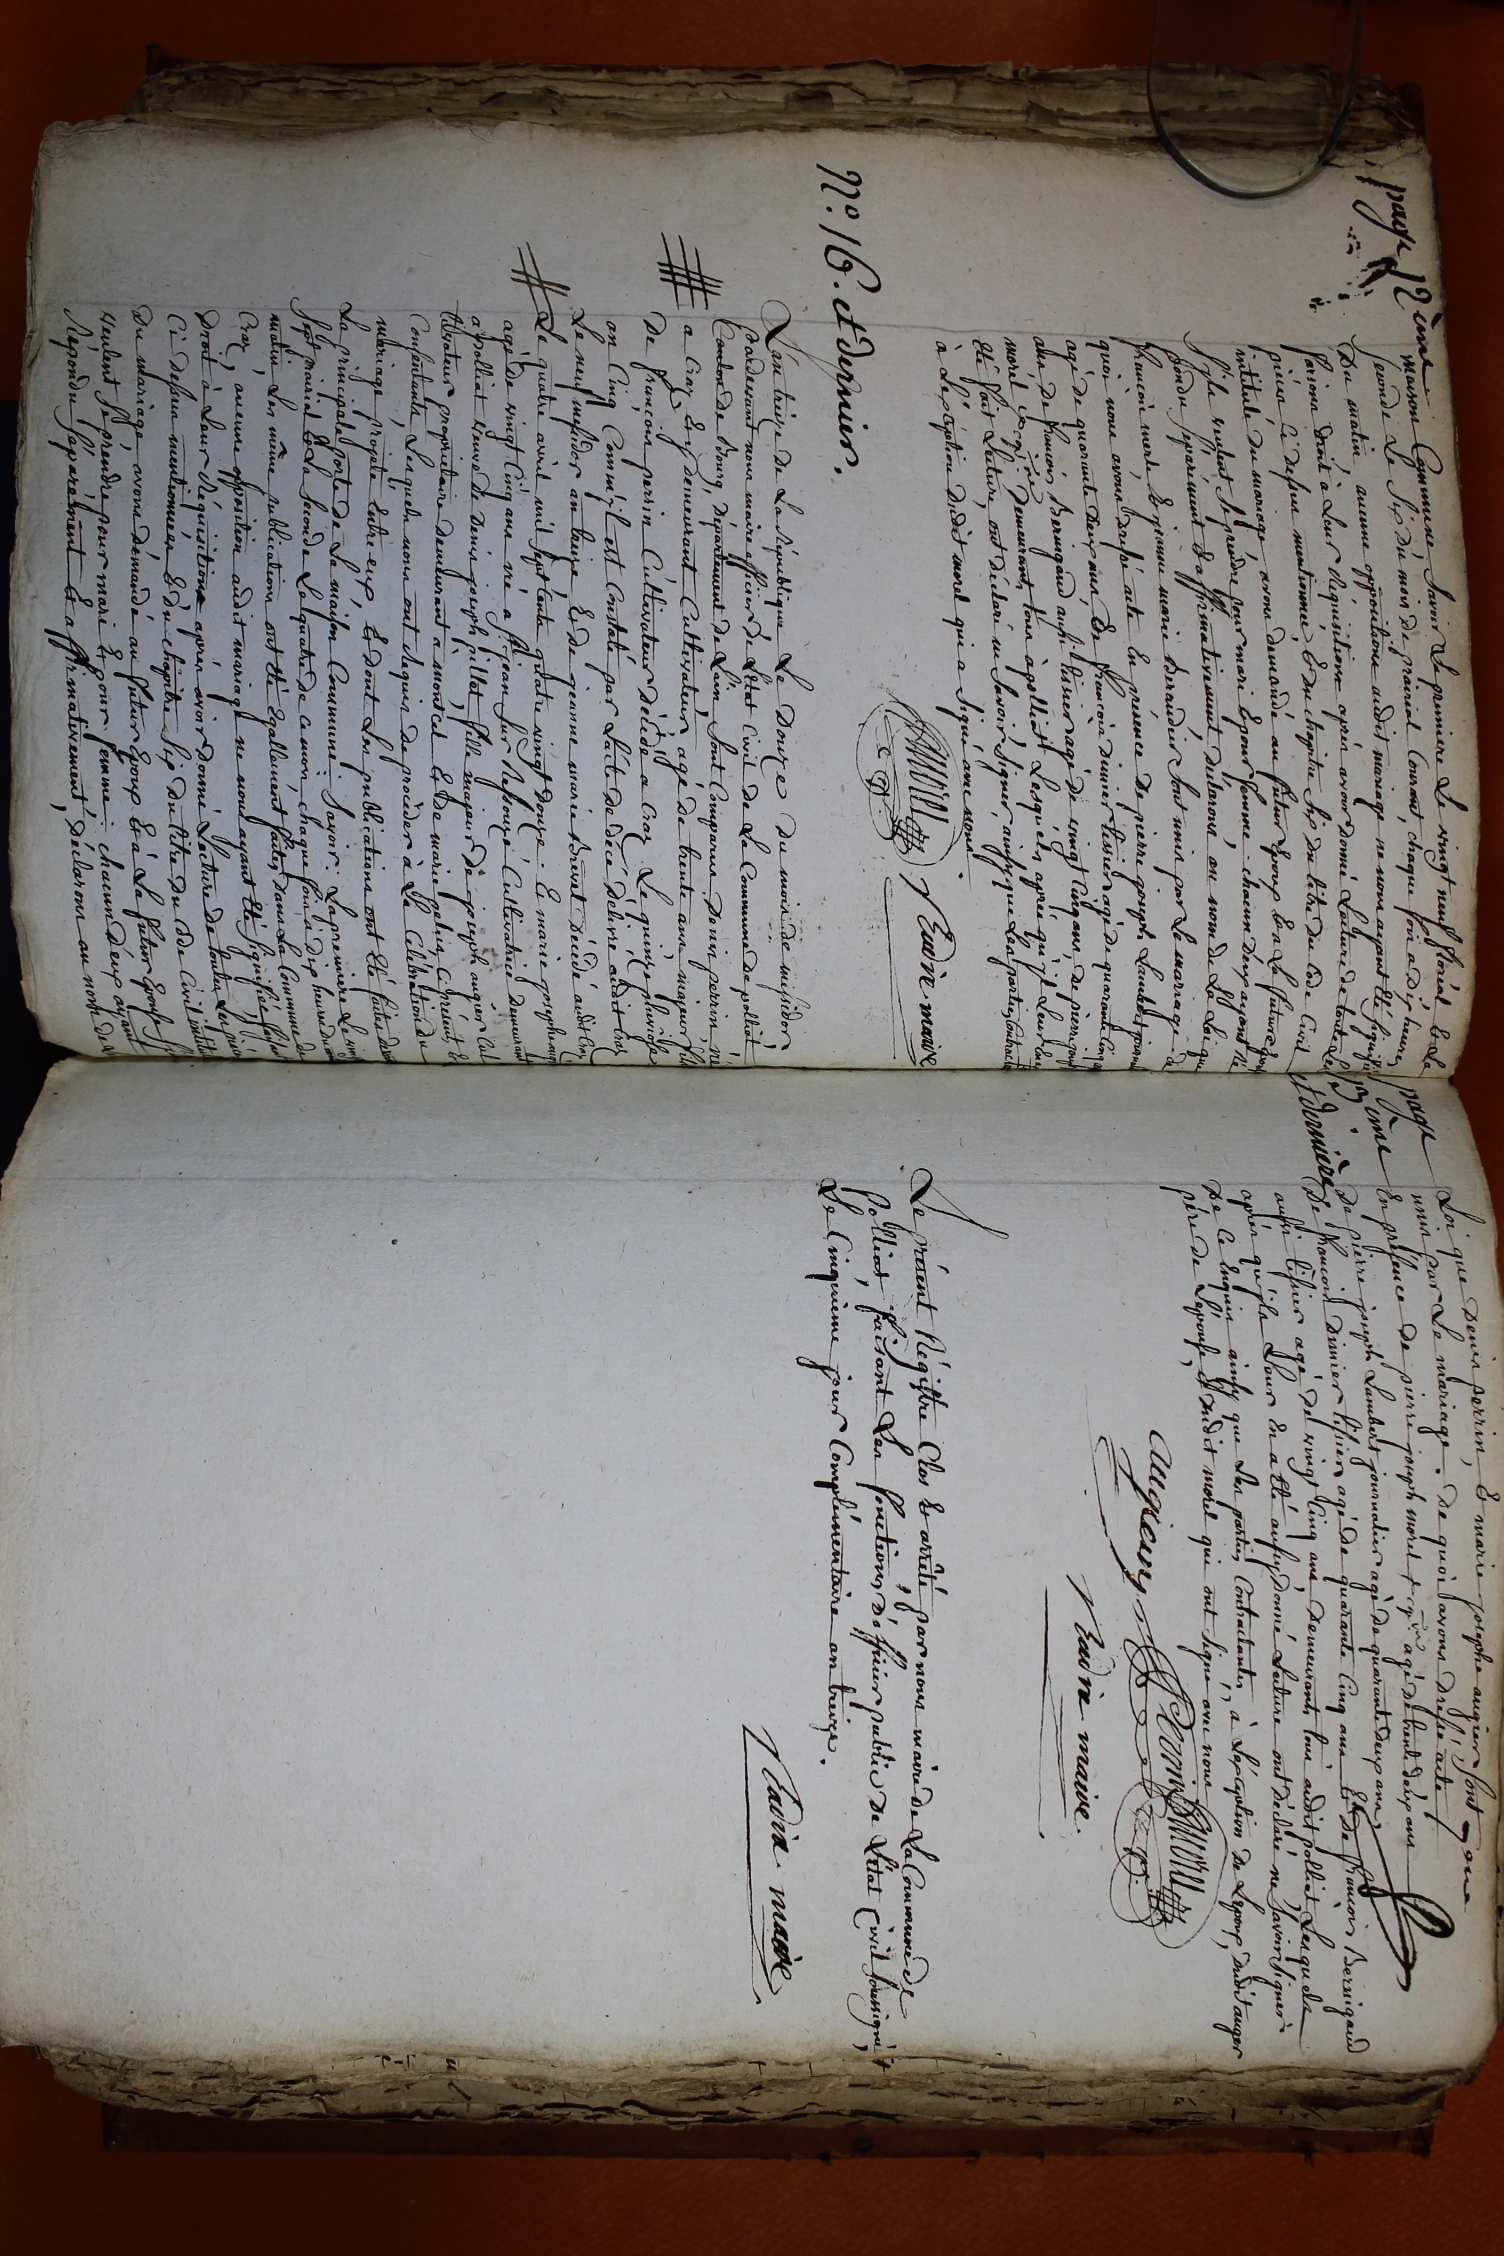 page 12ème
maison Commune, Savoir La premiere Le vingt neuf floréal et La
seconde Le Six du mois de prairial Courant, chaque fois a dix heures
Du matin, aucune opposition audit mariage ne nous ayant été signifiée
faisons droit à Leur Réquisitions après avoir donné Lecture de toutes Les
pièces Ci dessus mentionnés, et du chapitre Six du titre du Code Civil
intitulé du mariage avons demandé au futur Epoux et a La future Epouse
s'ils veulent Se prendre pour mari et pour femme, chacun deux ayant Ré
pondu séparément et affirmativement, déclarons au nom de La Loi que
françois merle et jeanne marie Beraudier Sont unis par Le mariage de
quoi nous avons dressé acte En présence de pierre joseph Lambert journalier
agé de quarante deux ans, de françois dimier tissier agé de quarante cinq
ans, de françois Bernigaud aussi tissier agé de vingt cinq ans, de pierre joseph
morel demeurants tous à polliat Lesquels après qu'il Leur En a
été fait Lecture, ont déclaré ne savoir signer, aussy que Les parties, contractantes
à L'exception dudit morel qui a signé avec nous.
Morel
Ravdin maire
N.º 16. et dernier.
L'an treize de La République Le Douze du mois de messidor,
Pardevant nous maire officier de L'état Civil de La Commune de polliat,
Canton de Bourg, Département de L'ain, Sont Comparus Denis perrin, né
a Craz Et y demeurant, Cultivateur agé de trente ans majeur, fils
De françois perrin Cultivateur décédé a Craz Le quinze pluviose
an Cinq Comm'il est Constaté par L'acte de décé délivré audit Craz
Le neuf messidor an treize, Et de jeanne marie Brevet Décédé audit Craz
Le quatre avril mil sept cents quatre vingt douze. Et marie josephe augier
agé de vingt Cinq ans né a St. jean sur Ressouze Cultivatrice demeurant
a polliat veuve de denis joseph pillot, fille majeur de joseph augier Cul
tivateur propriétaire demeurant a montcel Et de marie pelus, Ci présents, Et
Consentants, Lesquels nous ont requis de procéder à La Célébration du
mariage projetté Entre eux, et dont Les publications ont été faites devant
La principale porte de La maison Commune: Savoir: La première Le vingt
Sept prairial et La Seconde La quatre de ce mois, chaque fois à dix heures du
matin, Les même publications ont été Egallement faites Dans La Commune de
Craz, aucune opposition audit mariage ne nous ayant été signifié, faisant
Droit à Leur Réquisitions après avoir donné Lecture de toutes Les pièces
Ci dessus mentionnées, et du chapitre Six du titre du Code Civil intitulé
Du mariage avons demandé au futur Epoux Et a La future Epouse s'ils
veulent Se prendre pour mari et pour femme: chacun d'eux ayant
Répondu séparément Et affirmativement, déclarons au nom de La
page 13ème
et dernière
Loi que Denis perrin, et marie josephe augier Sont
unis par Le mariage. De quoi avons dressé acte
En présence de pierre joseph morel agé de trente deux ans
De pierre joseph Lambert journalier agé de quarante deux ans,
De françois Dimier tissier agé de quarante Cinq ans Et de françois Bernigaud
aussi tissier agé de vingt Cinq ans, demeurants tous audit polliat Lesquels
après qu'ils Leur En a été aussy donné Lecture ont déclaré ne savoir signer
De Ce Enquis ainsy que Les parties Contractantes, à L'exception de L'époux, dudit auger
père de L'épouse et dudit morel qui ont signé avec nous
augier Perrin Morel
Ravdin maire.
Le présent Régistre Clos et arrêté par nous maire de La Commune de
Polliat, faisant Les fonctions d'officier public de L'état Civil soussigné,
Le Cinquième jour Complémentaire an treize.
Ravdin maire